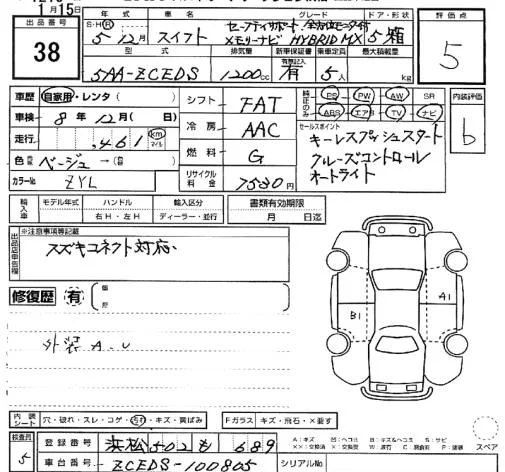 15日
出品番号 38
年式 車名 グレード ドア・形状 評価点
S・H・R 5年 12月 スイフト セーフティサポート 全方位モニター付
メモリーナビ HYBRID MX 5箱
型式 排気量 新車保証書 乗車定員 最大積載量
有無記入
5AA-ZCEDS 1200cc 有 5人 kg
5
車歴 自家用・レンタ( )
車検 8年 12月( 日)
走行 ,461 km マイル
色 ベージュ→(自 )
カラーNo. ZYL
シフト FAT
冷房 AAC
燃料 G
リサイクル料金 7580円
純正のみ PS PW AW SR
ABS エアB TV ナビ
セールスポイント
キーレスプッシュスタート
クルーズコントロール
オートライト
内装評価
b
輸入車 モデル年式 ハンドル 輸入区分
年 右H・左H ディーラー・並行
書類有効期限
月 日迄
出品店申告欄 ※注意事項等記載
スズキコネクト対応
修復歴 有 個所
外装A・U
B1
A1
内装シート 穴・破れ・スレ・コゲ・汚れ・キズ・黄ばみ
Fガラス キズ・飛石・×要す
検査員 5
登録番号 浜松502も689
車台番号 ZCEDS-100805
A:キズ U:ヘコミ B:キズ&ヘコミ S:サビ
××:交換済 X:要交換 W:波打 C:腐食 P:塗装
スペア
シリアルNo.